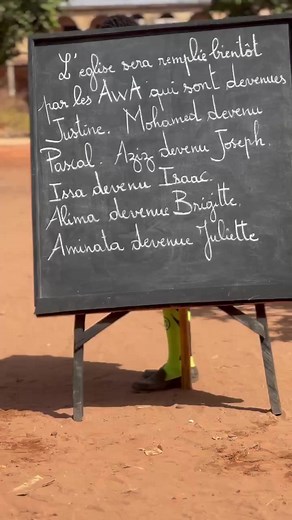 L'eglise sera remplie bientôt
par les AWA qui sont devenues
Justine. Mohamed devenu
Pascal. Aziz devenu Joseph.
Issa devenu Isaac.
Alima devenue Brigitte.
Aminata devenue Juliette